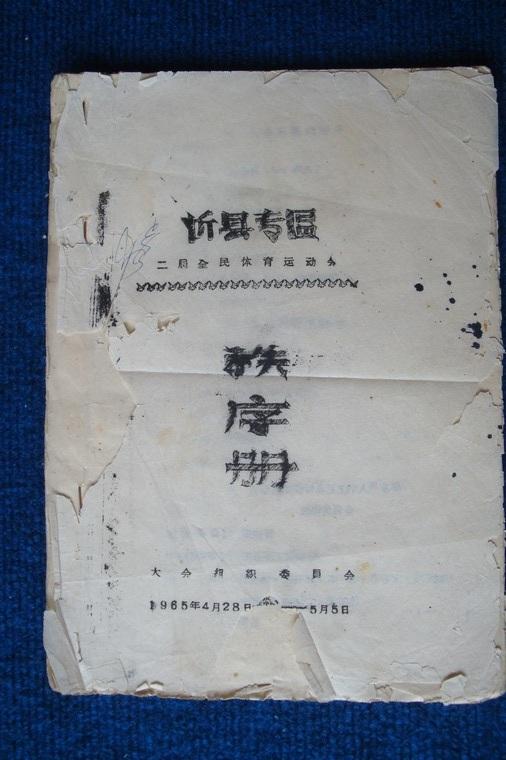 忻县专区
二届全民体育运动会
秩
序
册
大会组织委员会
1965年4月28日——5月5日